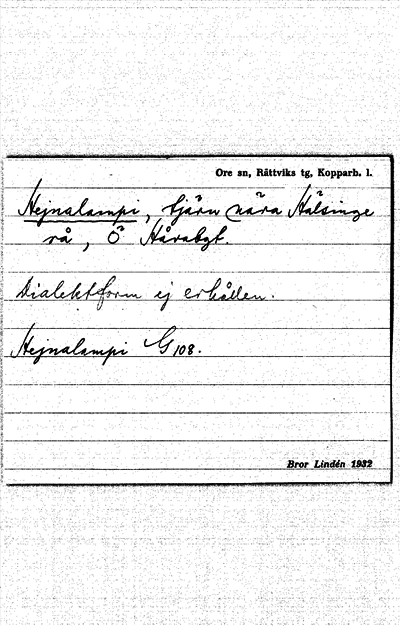 Ore sn, Rättviks tg, Kopparb. l.
Hejnalampi, tjärn nära Hälsinge
rå, Ö Håvabgt.
Dialektform ej erhållen.
Hejnalampi G 108.
Bror Lindén 1932